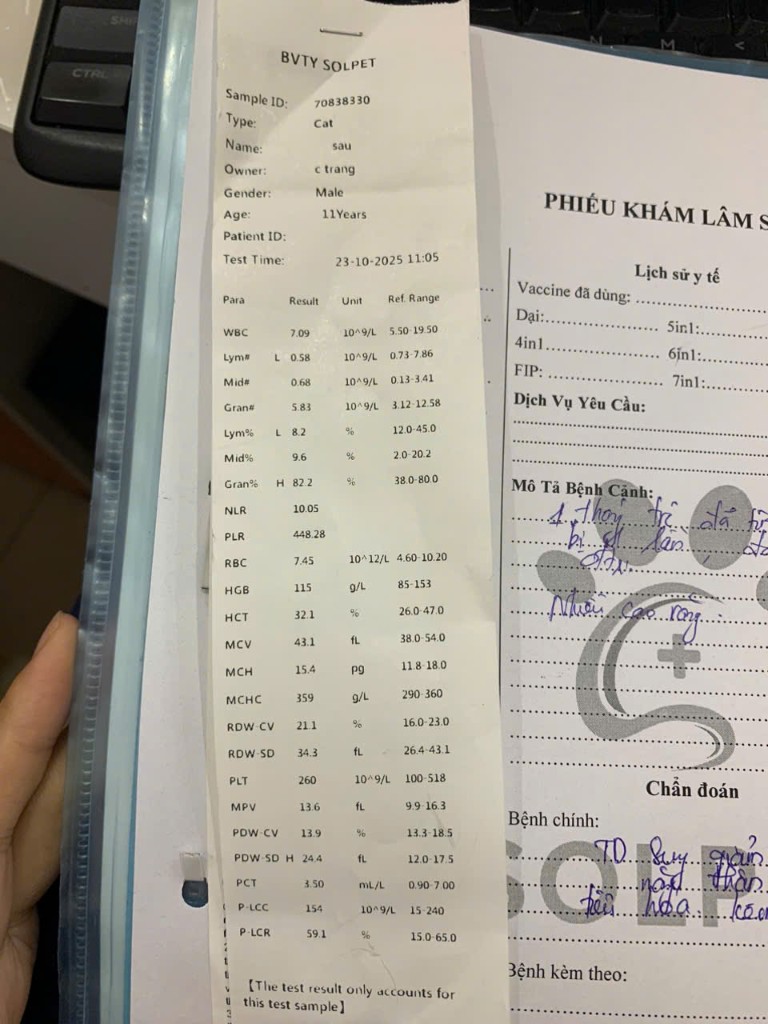 SHI
CTRL
N M <
BVTY SOLPET
Sample ID: 70838330
Type: Cat
Name: sau
Owner: c trang
Gender: Male
Age: 11Years
Patient ID:
Test Time: 23-10-2025 11:05
Para Result Unit Ref. Range
WBC 7.09 10^9/L 5.50-19.50
Lym# L 0.58 10^9/L 0.73-7.86
Mid# 0.68 10^9/L 0.13-3.41
Gran# 5.83 10^9/L 3.12-12.58
Lym% L 8.2 % 12.0-45.0
Mid% 9.6 % 2.0-20.2
Gran% H 82.2 % 38.0-80.0
NLR 10.05
PLR 448.28
RBC 7.45 10^12/L 4.60-10.20
HGB 115 g/L 85-153
HCT 32.1 % 26.0-47.0
MCV 43.1 fL 38.0-54.0
MCH 15.4 pg 11.8-18.0
MCHC 359 g/L 290-360
RDW-CV 21.1 % 16.0-23.0
RDW-SD 34.3 fL 26.4-43.1
PLT 260 10^9/L 100-518
MPV 13.6 fL 9.9-16.3
PDW-CV 13.9 % 13.3-18.5
PDW-SD H 24.4 fL 12.0-17.5
PCT 3.50 mL/L 0.90-7.00
P-LCC 154 10^9/L 15-240
P-LCR 59.1 % 15.0-65.0
【The test result only accounts for
this test sample】
PHIẾU KHÁM LÂM S
Lịch sử y tế
Vaccine đã dùng: ....................
Dại:...................... 5in1:
4in1...................... 6in1:
FIP: ...................... 7in1:
Dịch Vụ Yêu Cầu:
Mô Tả Bệnh Cảnh:
trĩ đã
bị lần
cao răng
Chẩn đoán
Bệnh chính:
TD Suy giảm
thận
tiêu hóa
SOLP
Bệnh kèm theo: